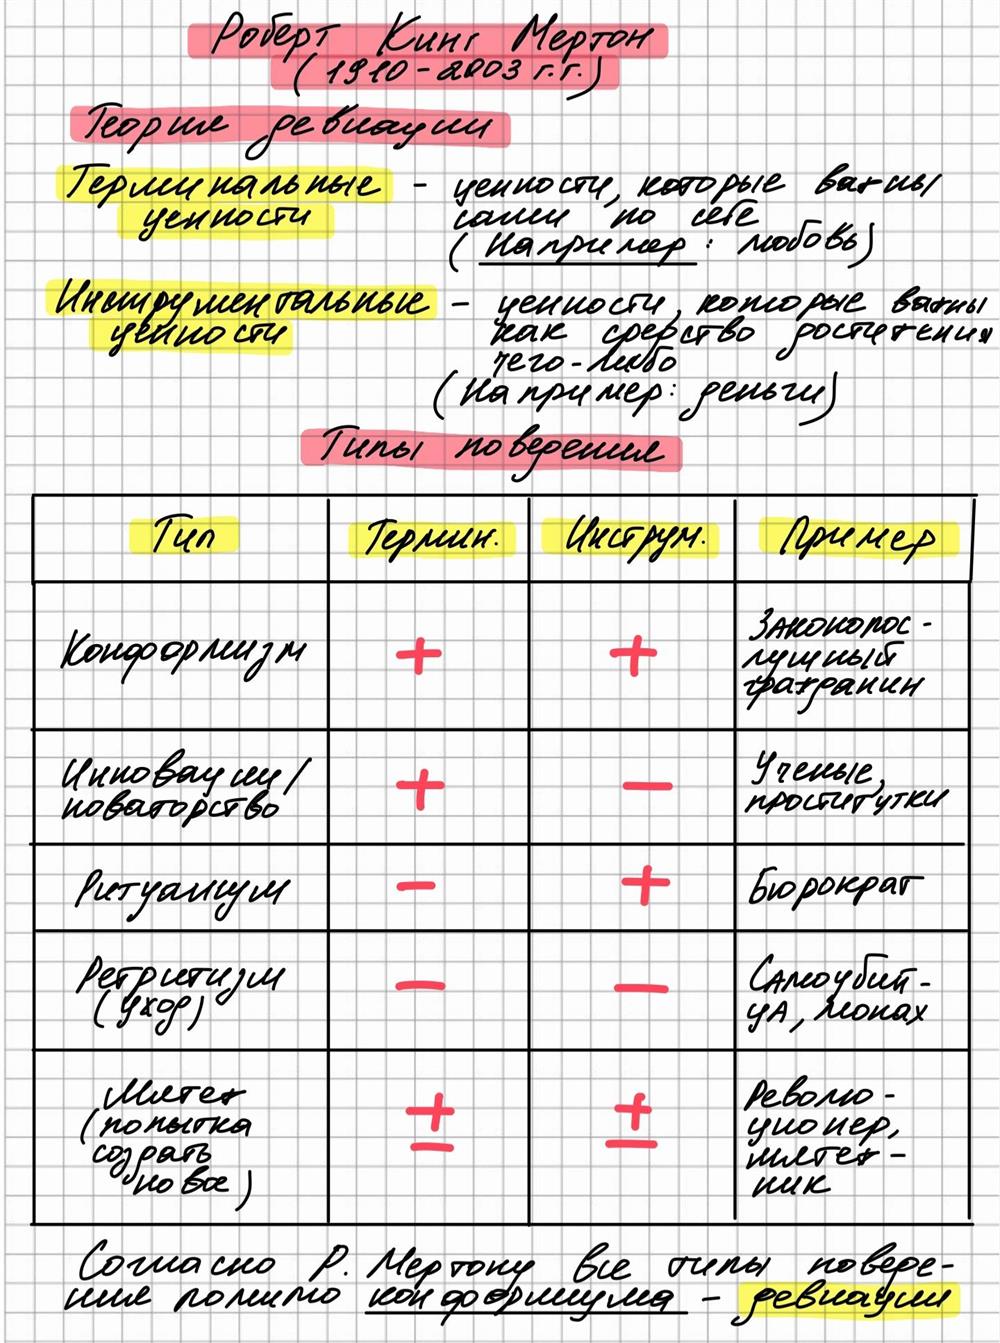 Роберт Кинг Мертон
(1910-2003 г.г.)
Теория девиации
Терминальные - ценности, которые важны
ценности сами по себе
(Например: любовь)
Инструментальные - ценности, которые важны
ценности как средство достижения
чего-либо
(Например: деньги)
Типы поведения
Тип Термин. Инструм. Пример
Конформизм + + Законопос-
лушный
гражданин
Инновации/ + - Ученые,
новаторство проститутки
Ритуализм - + Бюрократ
Ретритизм - - Самоубий-
(уход) ца, монах
Мятеж ± ± Револю-
(попытка ционер,
создать мятеж-
новое) ник
Согласно Р. Мертону все типы поведе-
ния помимо конформизма - девиации